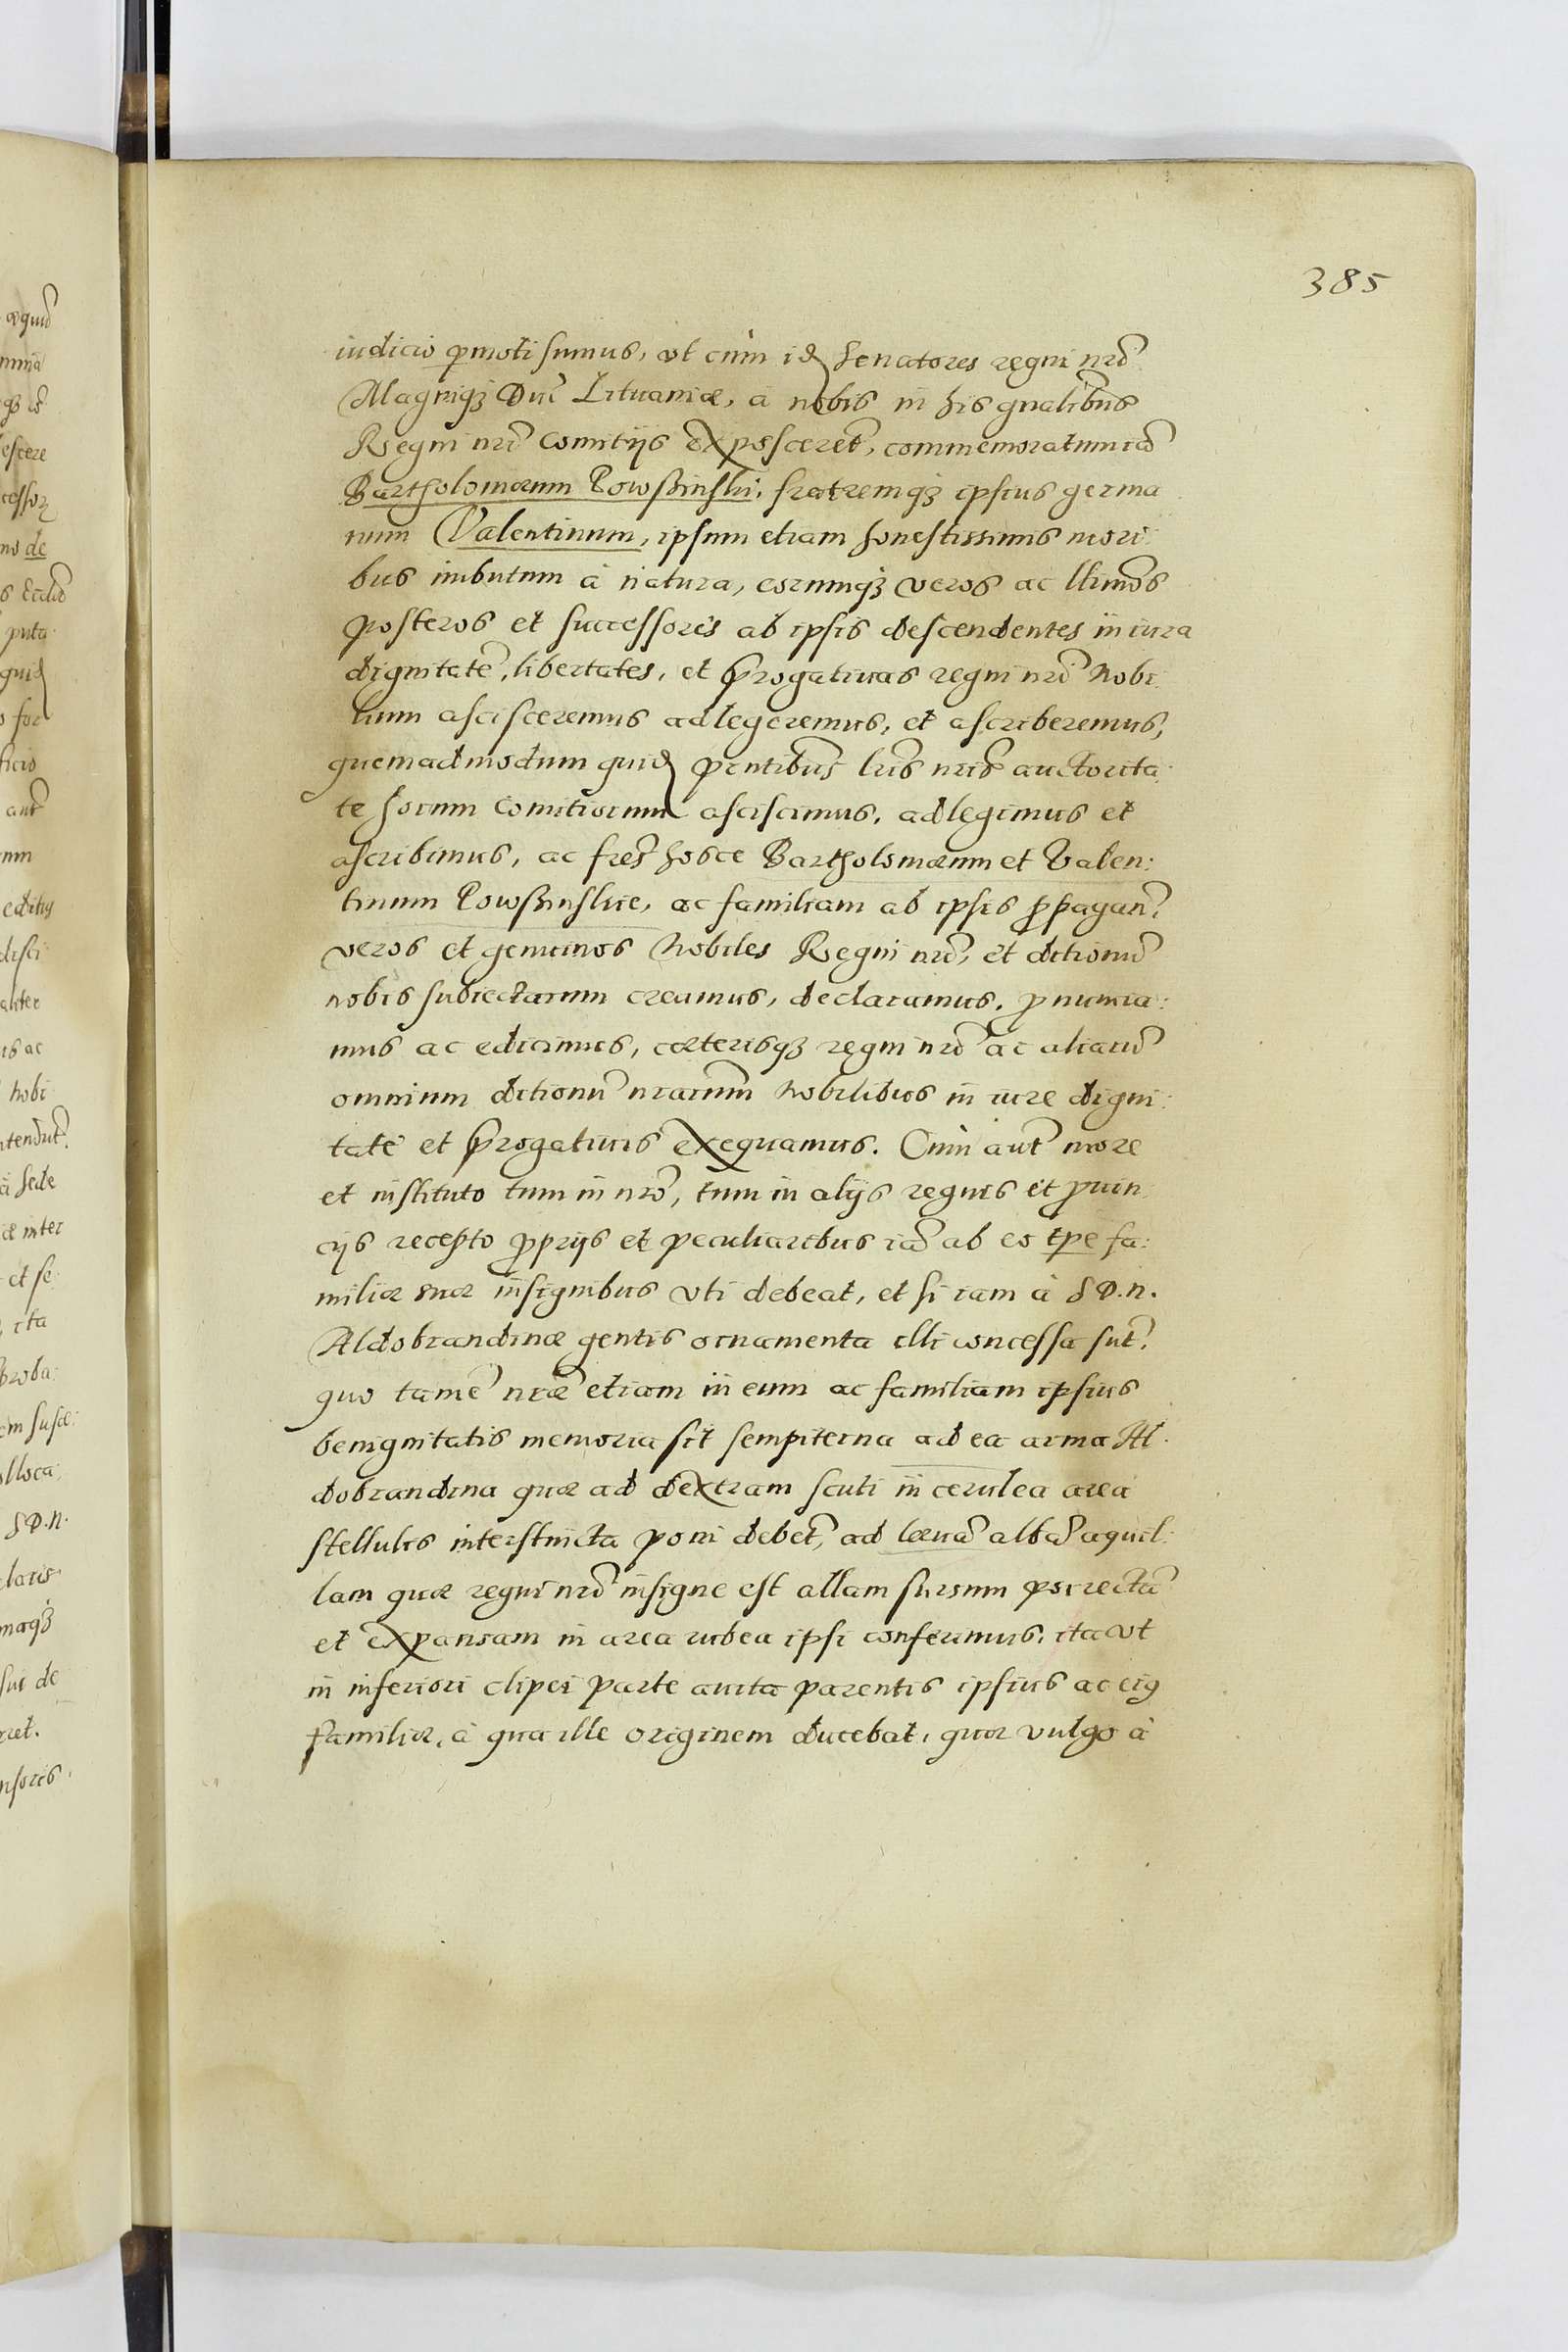 385
iudicio ꝑmoti sumus, vt cùm id Senatores regni nrĩ
Magniqꝫ Duc̃ Lituaniæ, à nobis in his gnalibus̃
Regni nrĩ Comitijs exposceret̃, commemoratum iã
Bartholomæum Powsinski, fratremqꝫ ipsius germa
num Valentinum, ipsum etiam honestissimis mori:
bus imbutum à natura, eorumqꝫ veros ac ltimos̃
posteros et successores ab ipsis descendentes in iura
dignitatẽ, libertates, et p̃rogatiuas regni nrĩ Nobi
lium ascisceremus adlegeremus, et ascriberemus,
quemadmodum quid p̃ntibus̃ lris̃ nris̃ auctorita:
te horum Comitiorum asciscimus, adlegimus et
ascribimus, ac fres̃ hosce Bartholomæum et Valen:
tinum Powsinskie, ac familiam ab ipsis ꝓpagañ,
veros et genuinos Nobiles Regni nrĩ, et ditionũ
nobis subiectarum creamus, declaramus, ꝓnuncia:
mus ac edicimus, cæterisqꝫ regni nrĩ ac aliarũ
omnium ditionũ nrarum̃ Nobilibus in iure digni:
tatẽ et p̃rogatiuis exequamus. Cùm aut̃ more
et instituto tum in nrõ, tum in alijs regnis et ꝓuin
cijs recepto ꝓprijs et peculiaribus iã ab eo tp̃e fa:
miliæ suæ insignibus vti debeat, et si iam à S D. N.
Aldobrandinæ gentis ornamenta illi concessa sut̃,
quo tamẽ nræ̃ etiam in eum ac familiam ipsius
benignitatis memoria sit sempiterna ad ea arma Al:
dobrandina quæ ad dextram scuti in cerulea area
stellulis interstincta poni debet̃, ad læuã albã aquil:
lam quæ regni nrĩ insigne est allam sursum porrectã
et expansam in area rubea ipsi conferimus, ita vt
in inferiori clipei parte auita parentis ipsius ac eiꝰ
familiæ, à qua ille originem ducebat, quæ vulgo à